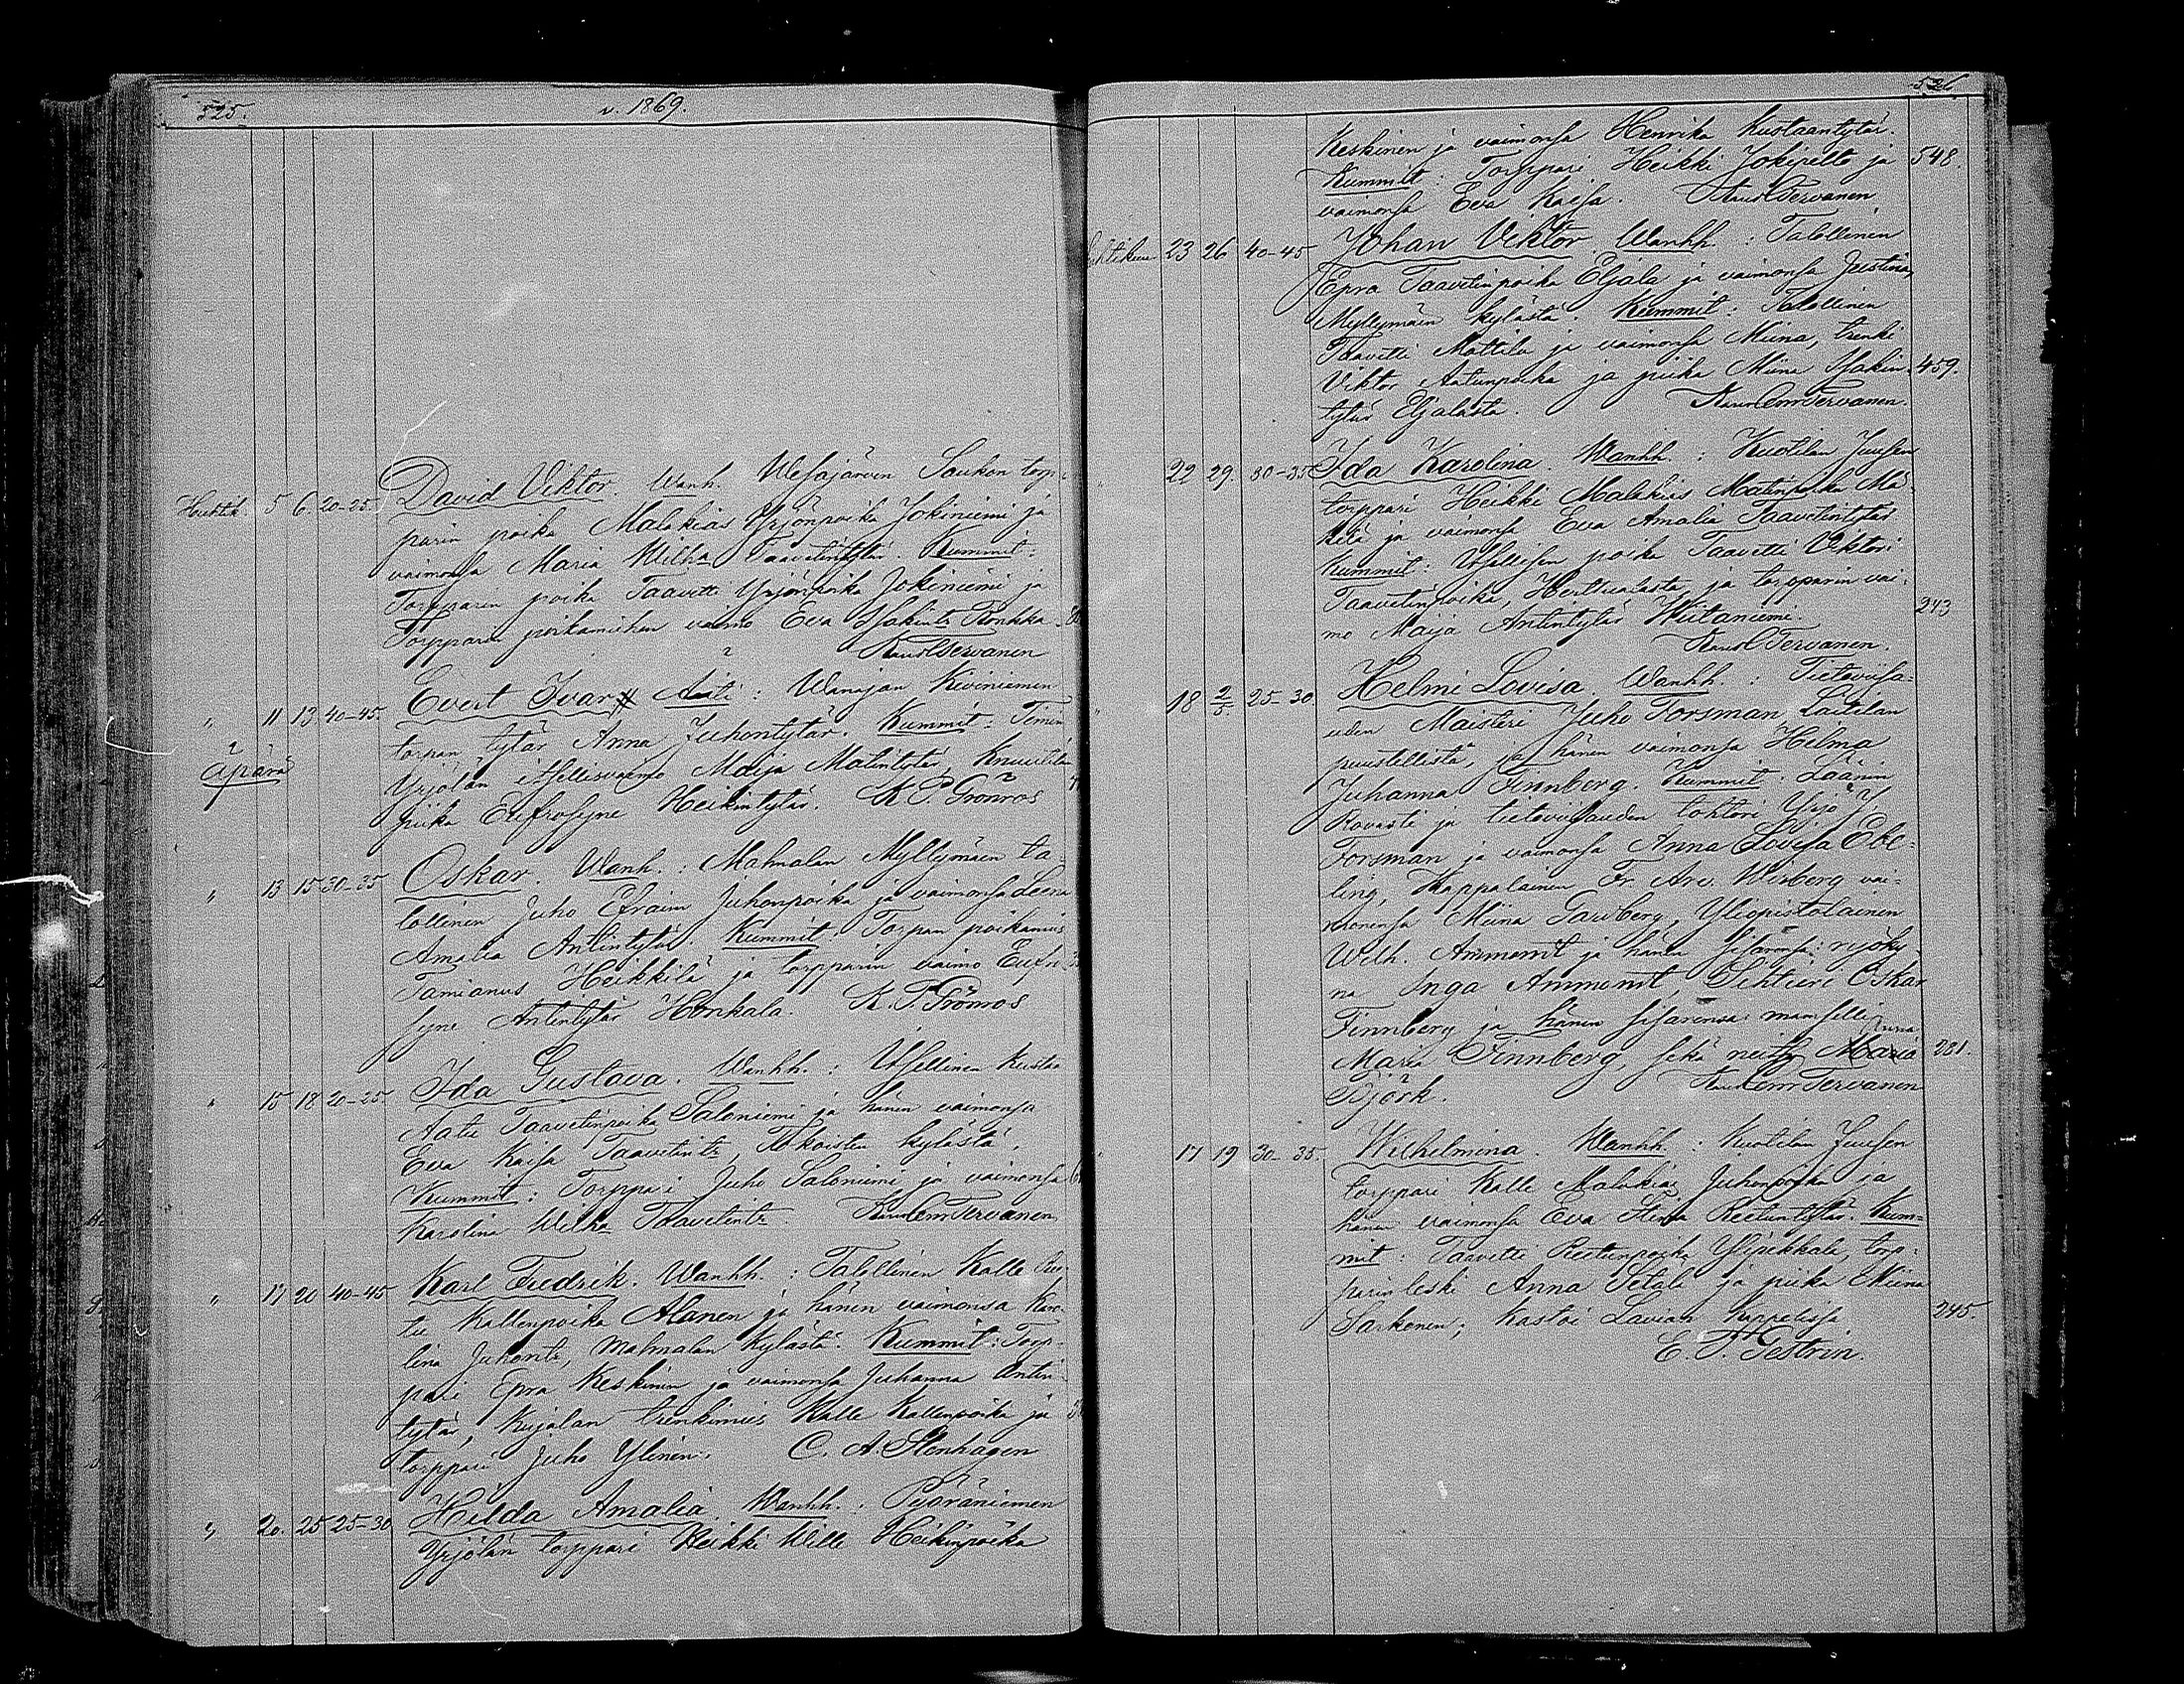 525.
v. 1869.
Huhtik. 5 6. 20-25. David Viktor. Wanh. Wesajärven Saukon torp-
parin poika Malakias Yrjönpoika Jokiniemi ja
vaimonsa Maria Wilh:a Taavetintytär. Kummit:
Torpparin poika Taavetti Yrjönpoika Jokiniemi ja
Torpparin poikamiehen vaimo Eva Isakintr Ronkka.
Tervanen
" 11 13 40-45. Evert Ivar. Äiti: Wanajan Kiviniemen
Äpärä
torpan tytär Anna Juhontytär. Kummit:
Yrjölän itsellisvaimo Maija Matintytär, Knuutilan
piika Eufrosyne Heikintytär. K. P. Grönros
" 13 15 30-35 Oskar. Wanh.: Mahnalan Myllymäen ta-
lollinen Juho Efraim Juhonpoika ja vaimonsa Leena
Amalia Antintytär. Kummit: Torpan poikamies
Tamianus Heikkilä ja torpparin vaimo Eufro-
syne Antintytär Honkala. K. P. Grönros
" 15 18 20-25 Ida Gustava. Wanhh.: Itsellinen Kustaa
Aatu Taavetinpoika Saloniemi ja hänen vaimonsa
Eva Kaisa Taavetintr, kylästä.
Kummit: Torppari Juho Saloniemi ja vaimonsa
Karolina Wilh:a Taavetintr. Tervanen
" 17 20 40-45 Karl Fredrik. Wanhh.: Talollinen Kalle Ee-
tu Kallenpoika Alanen ja hänen vaimonsa Karo-
lina Juhontr, Mahnalan kylästä. Kummit: Torp-
pari Epra Keskinen ja vaimonsa Juhanna Antin-
tytär, Kujalan trenkimies Kalle Kallenpoika ja
torppari Juho Ylinen. C. A. Stenhagen
" 20. 25 25-30 Hilda Amalia. Wanhh.: Pyöräniemen
Yrjölän torppari Heikki Wille Heikinpoika
526
Keskinen ja vaimonsa Henrika Kustaantytär.
Kummit: Torppari Heikki Jokipelto ja 548.
vaimonsa Eva Kaisa. Tervanen
Huhtikuu 23 26 40-45 Johan Viktor. Wanhh.: Talollinen
Epra Taavetinpoika Eljala ja vaimonsa Justina,
Myllymäen kylästä. Kummit: Talollinen
Taavetti Mattila ja vaimonsa Miina, trenki
Viktor Aatunpoika ja piika Miina Isakin- 459.
tytär Eljalasta. Tervanen.
" 22 29. 30-35 Ida Karolina. Wanhh.: Kuotilan Juusen
torppari Heikki Malakias Matinpoika Mä-
kelä ja vaimonsa Eva Amalia Taavetintytär.
Kummit: Itsellisen poika Taavetti Viktori
Taavetinpoika, Herttualasta, ja torpparin vai-
mo Maija Antintytär Wiitaniemi. 243
Tervanen.
" 18 2/5. 25-30 Helmi Lovisa. Wanhh.: Tietoviisa-
uden Maisteri Juho Forsman, Laitilan
puustellista, ja hänen vaimonsa Hilma
Juhanna Finnberg. Kummit: Läänin
Rovasti ja tietoviisauden tohtori Yrjö J.
Forsman ja vaimonsa Anna Lovisa Ebe-
ling, Kappalainen Fr. Arv. Wirberg vai-
monensa Miina Garvberg, Yliopistolainen
Wilh. Ammondt ja hänen sisarensa: ryöky-
nä Inga Ammondt, Sihteeri Oskar
Finnberg ja hänen sisarensa: mamselli
Maria Finnberg, sekä neitsy Maria Anna 281.
Björk. Tervanen
" 17 19 30-35. Wilhelmina. Wanhh.: Kuotilan Juusen
torppari Kalle Malakias Juhonpoika ja
hänen vaimonsa Eva Stiina Reetuntytär. Kum-
mit: Taavetti Reetunpoika Ylipekkala, torp-
parin leski Anna Setälä ja piika Miina
Sarkonen; kastoi Lavian Kappelissa 245.
E. T. Gestrin.